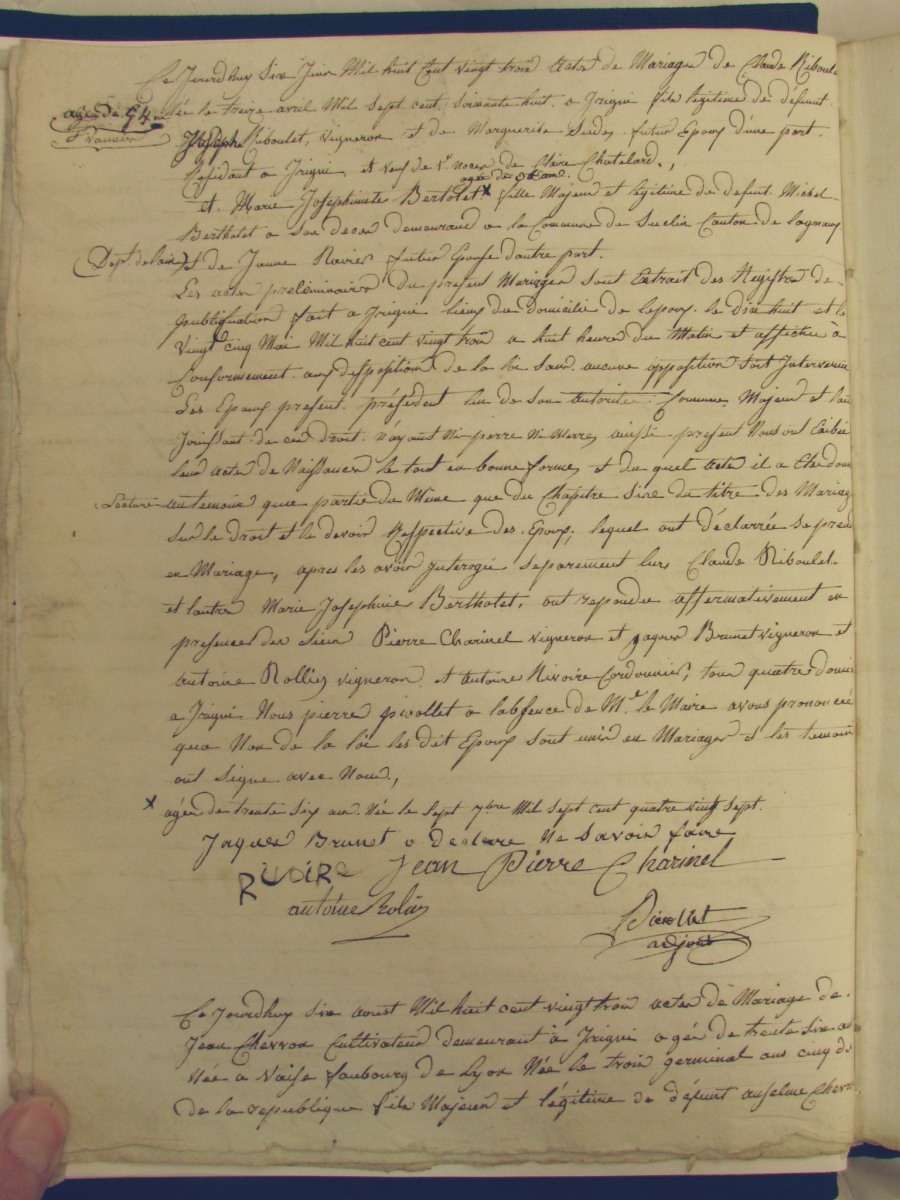 Ce Jourdhuy Six Juin Mil huit Cent vingt trois Acte de Mariage de Claude Riboulet
agée de 54.
Née le treize avril Mil Sept cent soixante huit a Irigni fils legitime de défunt
francois
Joseph Riboulet, vigneron et de Marguerite futur Epoux d'une part.
Residant a Irigni et veuf de 1re noces de Claire Chatelard.,
et Marie Josephinete Bertolet x fille Majeur et légitime de defunt Michel
Berthotet a son deces demeurand a la Commune de Canton de lagnieux
(Dept. de lain) et de Janne Ravier futur Epouse dautre part.
Les actes preliminaires du present Mariages sont Extrait des Registre de
publiquation fait a Irigni lieux du domicilie de lepoux le dix huit et le
vingt cinq Mai Mil huit cent vingt trois a huit heures du Matin et affichée à
Conformement aux disposition de la loi sans aucune opposition soit Intervenue
Les Epoux present. président lun de son autorite comme Majeur et lau
Joissant de ces droit Nayant Ni perre Ni Merre, aussi present Nous ont Exibée
leur actes de Naissances le tout en bonne formes, et du quel acte il a Ete donné
Lecture au temoins qua partie du Mime que du Chapitre sixe du titre des Mariag
sur le droit et le devoir Respective des Epoux, lequel ont déclarrée se prend
en Mariage, apres les avoir Interrogée separement lun Claude Riboulet
et lautres Marie Josephines Berthotet, ont repondue affermativement en
presences des sieur Pierre Charinel vigneron et Jaques Brunet vigneron et
antoine Rollies vigneron et Antoine Rivoire Cordonnier, tous quatre domi
a Irigni Nous pierre picollet a labsence de Mr. le Maire avons prononcéé
qua Nom de la loi les dit Epoux sont unis en Mariages et les temoin
ont signe avec Nous.,
x agée de trente six ans. Née le sept 7bre Mil sept cent quatre vingt sept.
Jaques Brunet a declare Ne savoir faire
Jean Pierre Charinel
RIVOIRE
antoine Rolies
Picollet
adjoint
Ce Jourdhuy six aoust Mil huit cent vingt trois actes de Mariage de
Jean Chevron Cultivateur demeurant à Irigni agée de trente six ans
Née a Vaise faubourg de Lyon Née le trois germinal ans cinq de
de la republique fils Majeur et légitime de défunt anselme Chevr